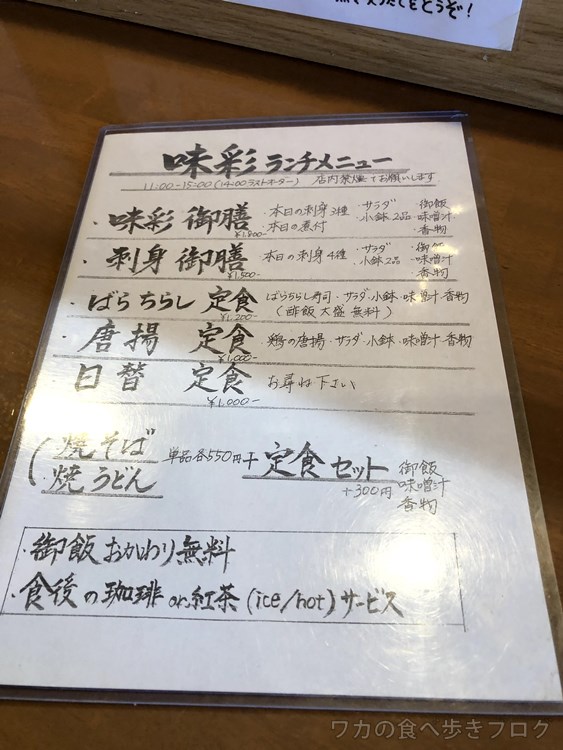 をどうぞ!
味彩 ランチメニュー
11:00-15:00(14:00ラストオーダー) 店内禁煙でお願いします
・味彩 御膳 ¥1,800- ・本日の刺身3種 ・サラダ ・御飯
・本日の煮付 ・小鉢2品 ・味噌汁
・香物
・刺身 御膳 ¥1,500- ・本日の刺身4種 ・サラダ ・御飯
・小鉢2品 ・味噌汁
・香物
・ばらちらし 定食 ¥1,200- ばらちらし寿司・サラダ・小鉢・味噌汁・香物
(酢飯大盛無料)
・唐揚 定食 ¥1,000- 鶏の唐揚・サラダ・小鉢・味噌汁・香物
・日替 定食 ¥1,000- お尋ね下さい
・焼そば
・焼うどん
単品各550円+定食セット +300円
御飯
味噌汁
香物
・御飯おかわり無料
・食後の珈琲or紅茶(ice/hot)サービス
ワカの食べ歩きブログ